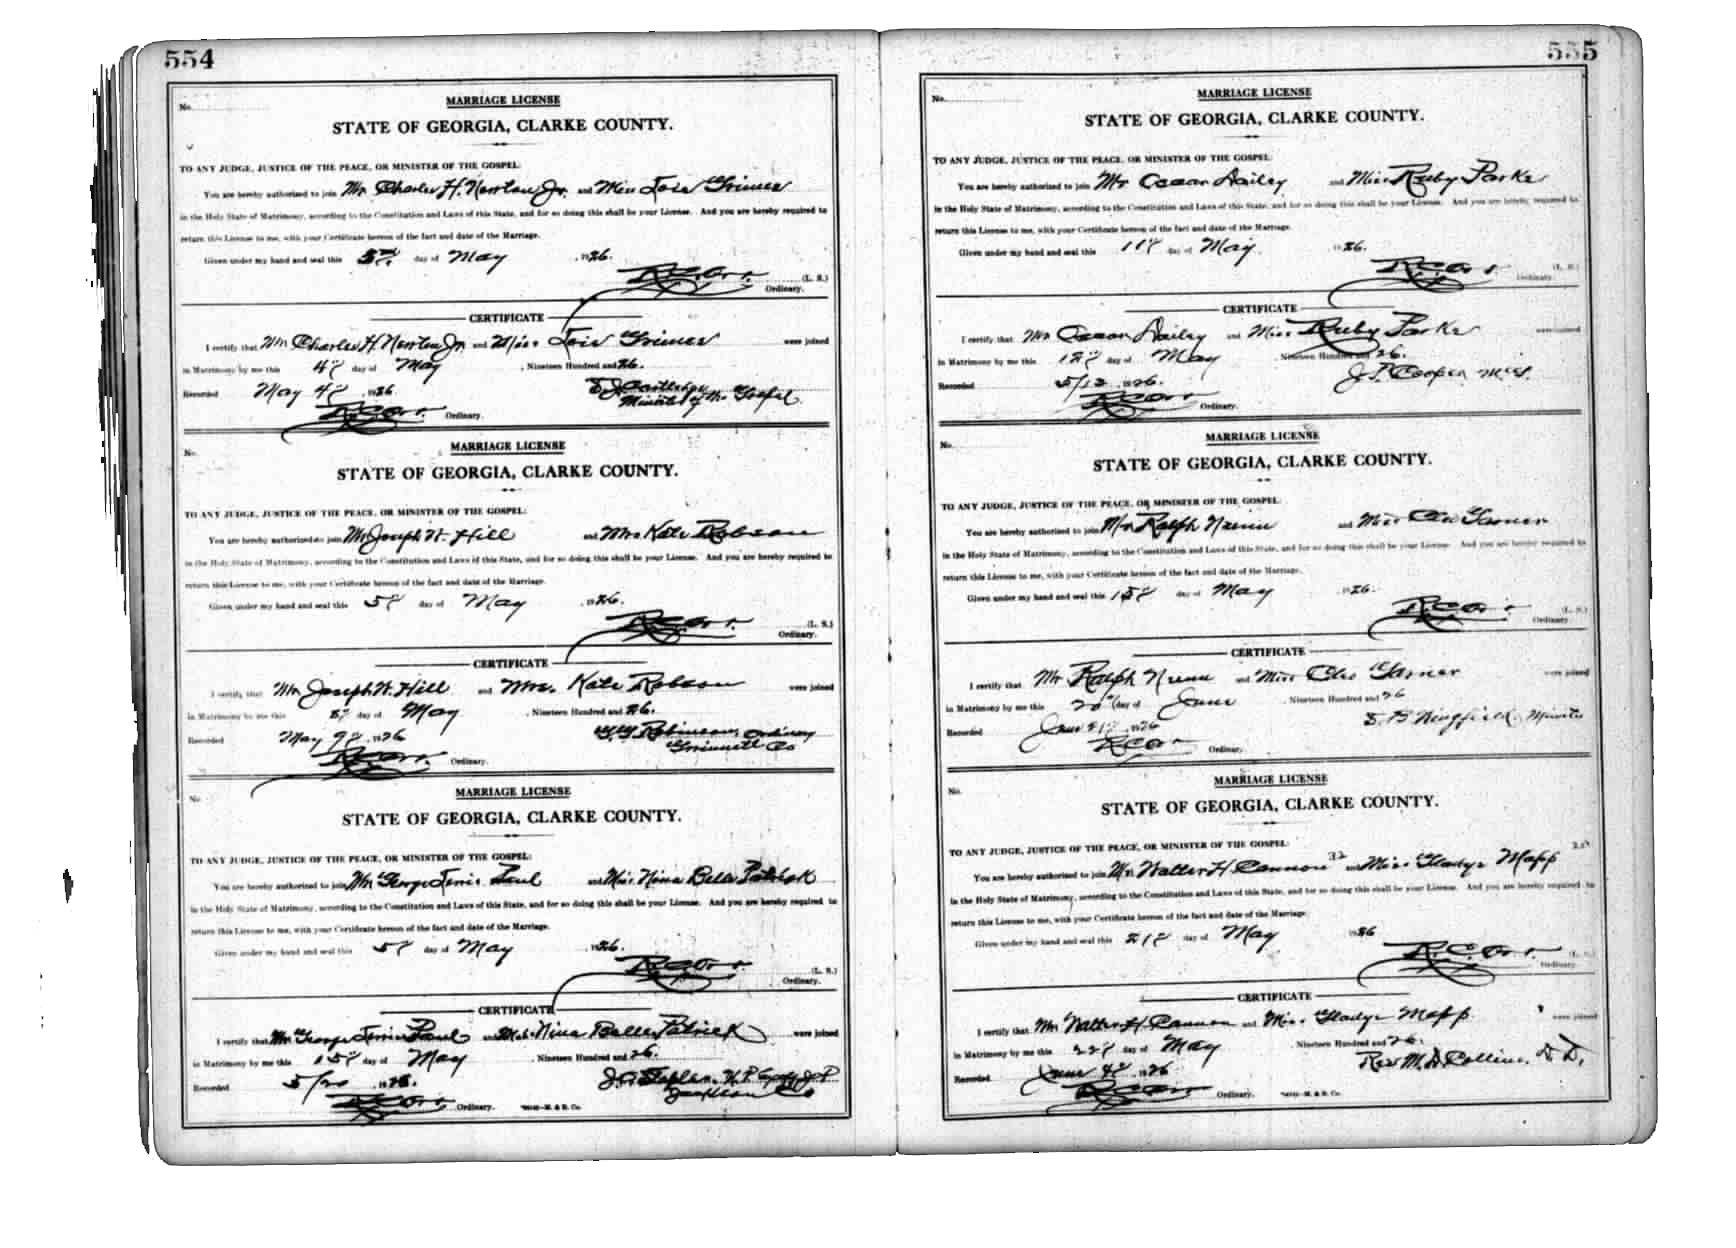 554
No.
MARRIAGE LICENSE
STATE OF GEORGIA, CLARKE COUNTY.
TO ANY JUDGE, JUSTICE OF THE PEACE, OR MINISTER OF THE GOSPEL:
You are hereby authorized to join Mr. Charles H. Newton Jr. and Miss Lois Grimes
in the Holy State of Matrimony, according to the Constitution and Laws of this State, and for so doing this shall be your License. And you are hereby required to
return this License to me, with your Certificate hereon of the fact and date of the Marriage.
Given under my hand and seal this day of May , 1926.
R.C. Orr. (L. S.)
Ordinary.
CERTIFICATE
I certify that Mr. Charles H. Newton Jr. and Miss Lois Grimes were joined
in Matrimony by me this 4th day of May , Nineteen Hundred and 26.
Recorded May 4th 1926
Minister of the Gospel
R.C. Orr. Ordinary.
No.
MARRIAGE LICENSE
STATE OF GEORGIA, CLARKE COUNTY.
TO ANY JUDGE, JUSTICE OF THE PEACE, OR MINISTER OF THE GOSPEL:
You are hereby authorized to join Mr Joseph W. Hill and Mrs Kate Robson
in the Holy State of Matrimony, according to the Constitution and Laws of this State, and for so doing this shall be your License. And you are hereby required to
return this License to me, with your Certificate hereon of the fact and date of the Marriage.
Given under my hand and seal this 5th day of May , 1926.
R.C. Orr. (L. S.)
Ordinary.
CERTIFICATE
I certify that Mr Joseph W. Hill and Mrs. Kate Robson were joined
in Matrimony by me this day of May , Nineteen Hundred and 26.
Recorded May 9th 1926 Robinson, Ordinary
Gwinnett Co
R.C. Orr. Ordinary.
No.
MARRIAGE LICENSE
STATE OF GEORGIA, CLARKE COUNTY.
TO ANY JUDGE, JUSTICE OF THE PEACE, OR MINISTER OF THE GOSPEL:
You are hereby authorized to join Mr. George Paul and Miss Nina Belle Patrick
in the Holy State of Matrimony, according to the Constitution and Laws of this State, and for so doing this shall be your License. And you are hereby required to
return this License to me, with your Certificate hereon of the fact and date of the Marriage.
Given under my hand and seal this 5th day of May , 1926.
R.C. Orr. (L. S.)
Ordinary.
CERTIFICATE
I certify that Mr. George Paul and Miss Nina Belle Patrick were joined
in Matrimony by me this 15th day of May , Nineteen Hundred and 26.
Recorded 5/20 1926.
Jackson Co
R.C. Orr. Ordinary.
555
No.
MARRIAGE LICENSE
STATE OF GEORGIA, CLARKE COUNTY.
TO ANY JUDGE, JUSTICE OF THE PEACE, OR MINISTER OF THE GOSPEL:
You are hereby authorized to join Mr Oscar Dailey and Miss Ruby Parks
in the Holy State of Matrimony, according to the Constitution and Laws of this State, and for so doing this shall be your License. And you are hereby required to
return this License to me, with your Certificate hereon of the fact and date of the Marriage.
Given under my hand and seal this 11th day of May. 1926.
R.C. Orr (L. S.)
Ordinary.
CERTIFICATE
I certify that Mr. Oscar Dailey and Miss Ruby Parks were joined
in Matrimony by me this 12th day of May , Nineteen Hundred and 26.
Recorded 5/12 1926. Cooper
R.C. Orr Ordinary.
No.
MARRIAGE LICENSE
STATE OF GEORGIA, CLARKE COUNTY.
TO ANY JUDGE, JUSTICE OF THE PEACE, OR MINISTER OF THE GOSPEL:
You are hereby authorized to join Mr Ralph Nunn and Miss Cleo Garner
in the Holy State of Matrimony, according to the Constitution and Laws of this State, and for so doing this shall be your License. And you are hereby required to
return this License to me, with your Certificate hereon of the fact and date of the Marriage.
Given under my hand and seal this 15th day of May 1926.
R.C. Orr. (L. S.)
Ordinary.
CERTIFICATE
I certify that Mr Ralph Nunn and Miss Cleo Garner were joined
in Matrimony by me this 20th day of June , Nineteen Hundred and 26
Recorded June 21st 1926 Wingfield, Minister
R.C. Orr Ordinary.
No.
MARRIAGE LICENSE
STATE OF GEORGIA, CLARKE COUNTY.
TO ANY JUDGE, JUSTICE OF THE PEACE, OR MINISTER OF THE GOSPEL:
You are hereby authorized to join Mr. Walter H. Cannon 32 and Miss Gladys Mapp
in the Holy State of Matrimony, according to the Constitution and Laws of this State, and for so doing this shall be your License. And you are hereby required to
return this License to me, with your Certificate hereon of the fact and date of the Marriage.
Given under my hand and seal this 21st day of May 1926
R.C. Orr. (L. S.)
Ordinary.
CERTIFICATE
I certify that Mr. Walter H. Cannon and Miss Gladys Mapp were joined
in Matrimony by me this 22nd day of May , Nineteen Hundred and 26.
Recorded June 4th 1926 Rev M. D. Collins, D. D.
R.C. Orr Ordinary.